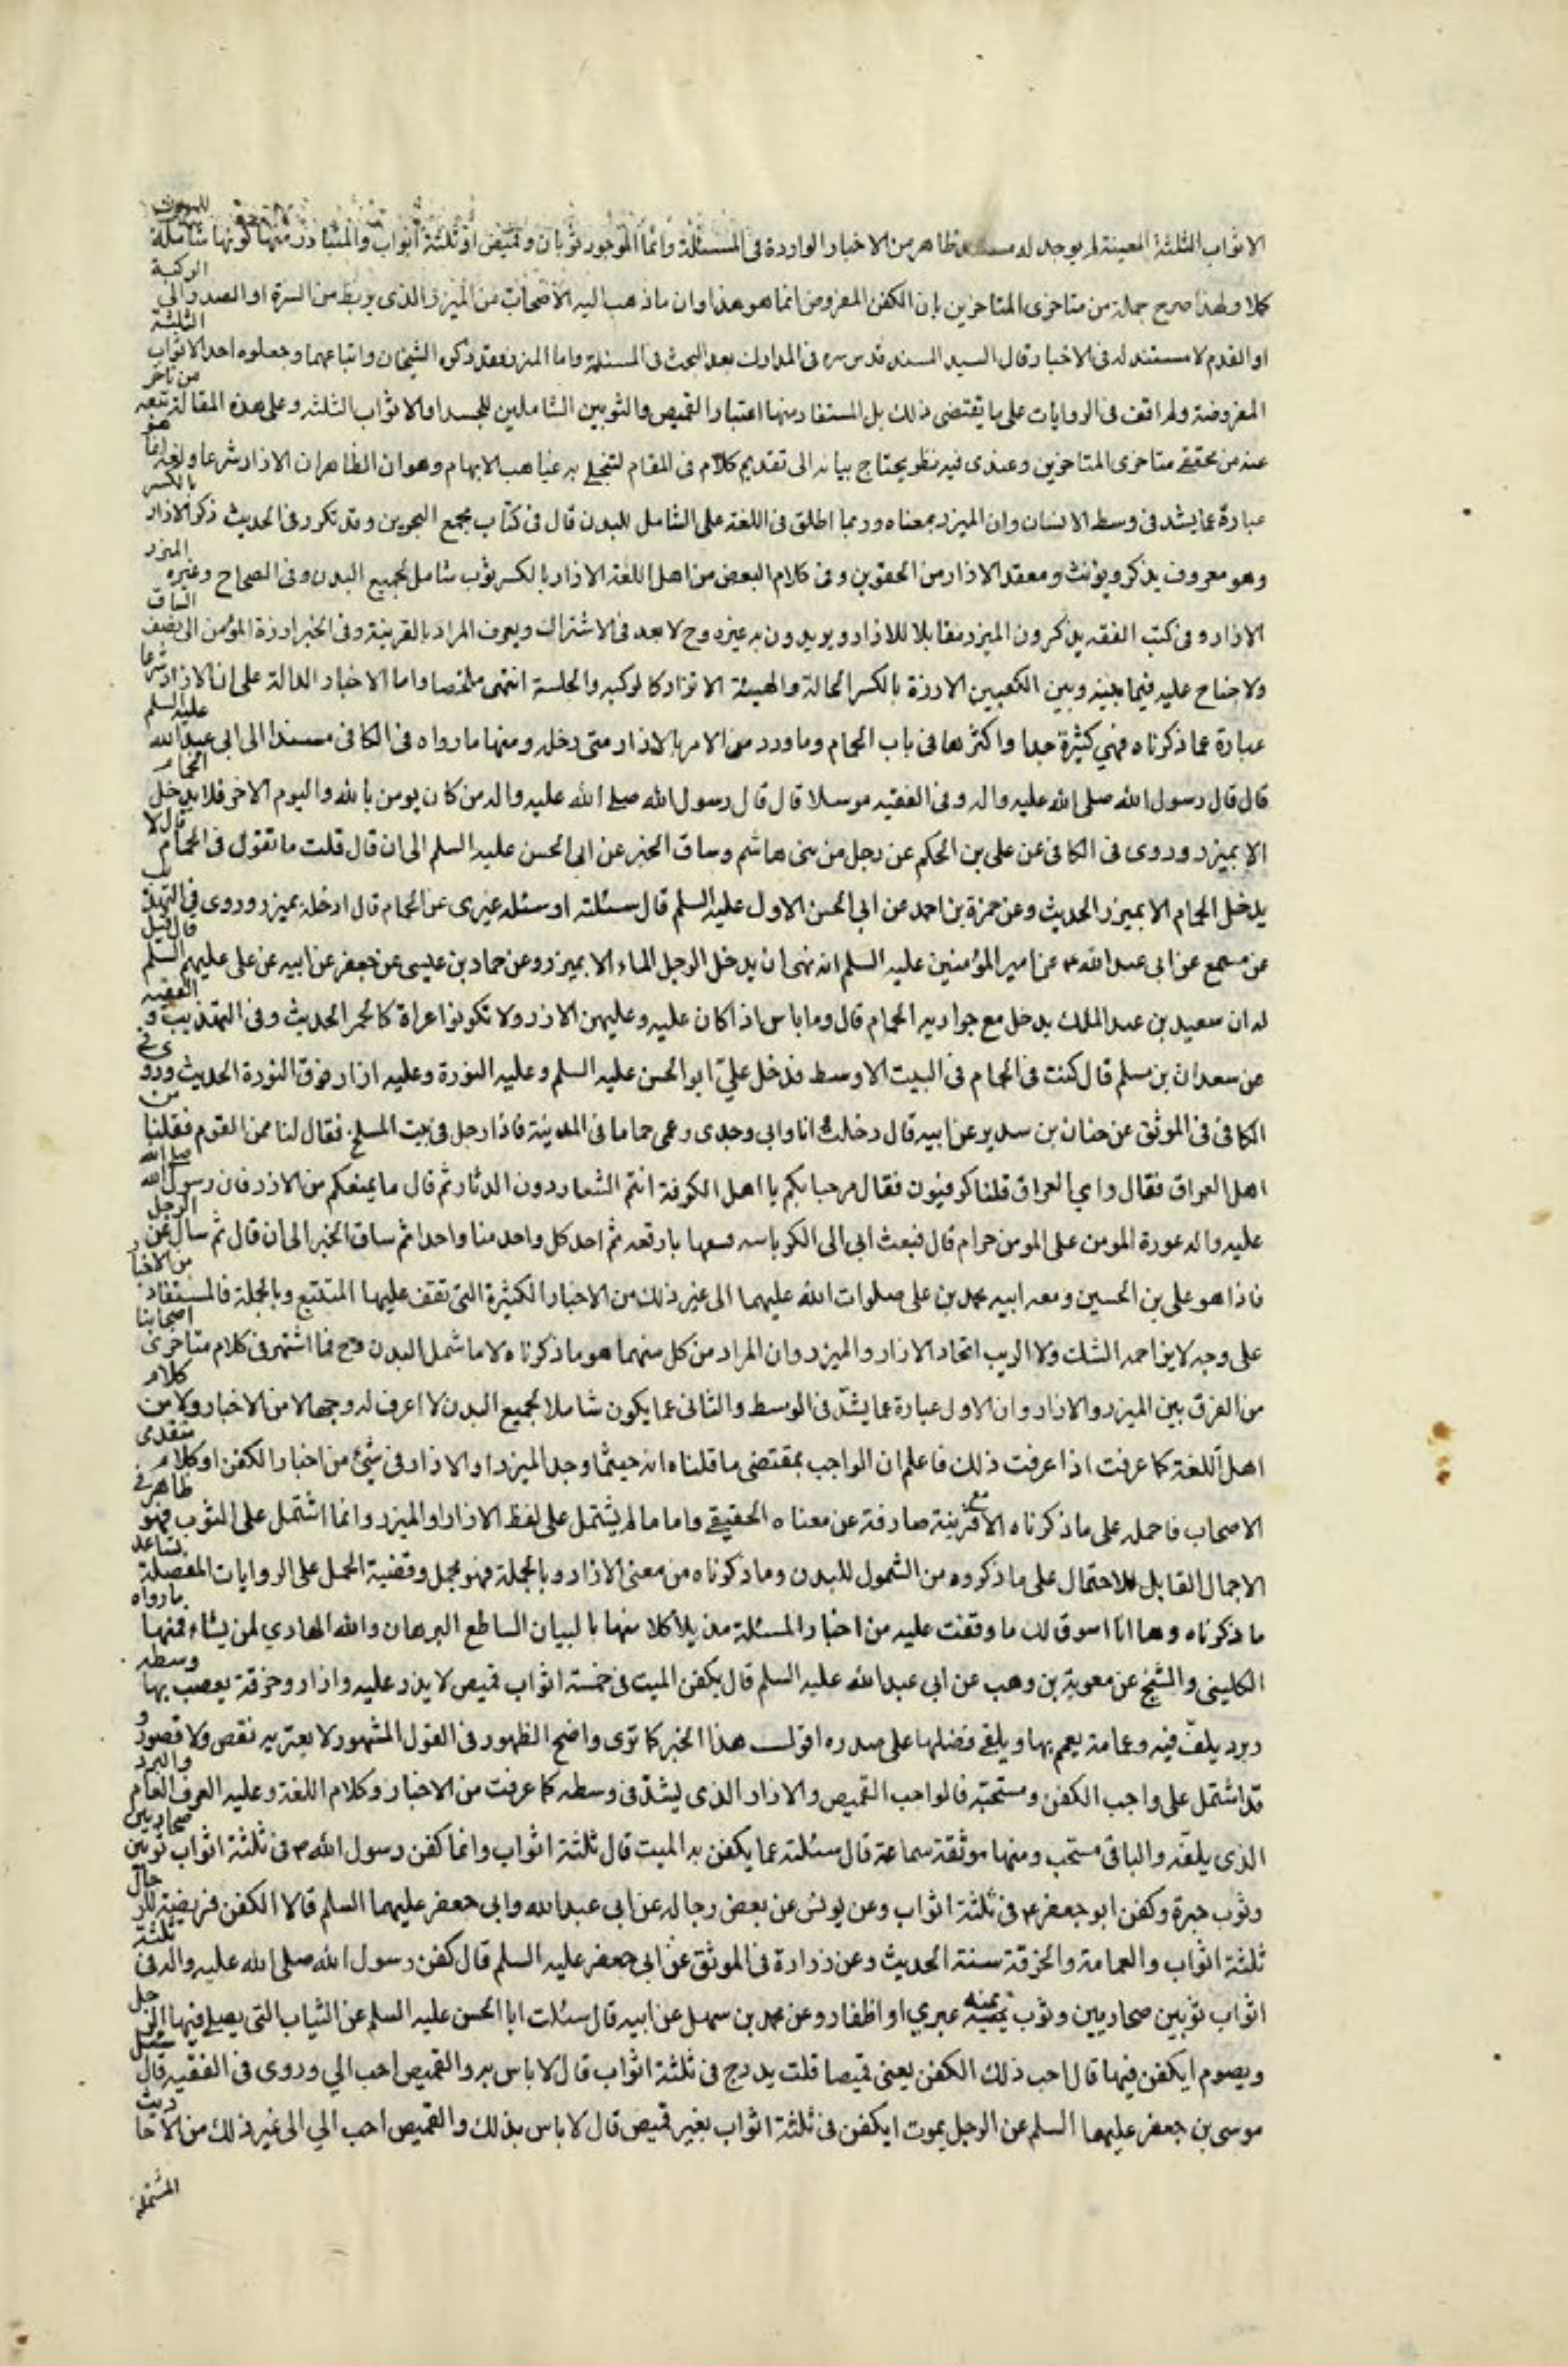 الاثواب الثلثة المعينة لم يوجد له مستند ظاهر من الاخبار الواردة فى المسئلة وانما الموجود ثوبان وقميص او ثلثة اثواب والمتبادر منها كونها شاملة للبدن
كلا ولهذا صرح جملة من متاخرى المتاخرين بان الكفن المفروض انما هو هذا وان ماذهب اليه الاصحاب من الميزر الذى يربط من السرة او الصدر الى الركبة
او القدم لا مستند له فى الاخبار وقال السيد السند قدس سره فى المدارك بعد البحث فى المسئلة واما الميزر فقد ذكره الشيخان واتباعهما وجعلوه احد الاثواب الثلثة
المفروضة ولم اقف فى الروايات على ما يقتضى ذلك بل المستفاد منها اعتبار القميص والثوبين الشاملين للجسد او الاثواب الثلثه وعلى هذه المقالة تبعه من تاخر
عنه من محققى متاخرى المتاخرين وعندى فيه نظر يحتاج بيانه الى تقديم كلام فى المقام لتنجلى به غياهب الابهام وهو ان الظاهر ان الازار شرعا ولغة انما هو
عبارة عما يشد فى وسط الانسان وان الميزر بمعناه وربما اطلق فى اللغة على الشامل للبدن قال فى كتاب مجمع البحرين وقد تكرر فى الحديث ذكر الازار بالكسر
وهو معروف يذكر ويؤنث ومعقد الازار من الحقوين وفى كلام البعض من اهل اللغة الازار بالكسر ثوب شامل لجميع البدن وفى الصحاح وغيره الميزر
الازار وفى كتب الفقه يذكرون الميزر مقابلا للازار ويريدون به غيره وح لا بعد فى الاشتراك ويعرف المراد بالقرينة وفى الخبر ازرة المؤمن الى نصف الساق
ولا جناح عليه فيما بينه وبين الكعبين الازرة بالكسر الحالة والهيئة الاتزار كالركبه والجلسة انتهى ملخصا واما الاخبار الدالة على ان الازار شرعا
عبارة عما ذكرناه فهي كثيرة جدا واكثرها فى باب الحمام وما ورد من الامر بالازار متى دخله ومنها ما رواه فى الكافى مسندا الى ابى عبد الله عليه السلم
قال قال رسول الله صلى الله عليه واله وفى الفقيه مرسلا قال قال رسول الله صلى الله عليه واله من كان يومن بالله واليوم الاخر فلا يدخل الحمام
الا بميزر وروى فى الكافى عن على بن الحكم عن رجل من بنى هاشم وساق الخبر عن ابى الحسن عليه السلم الى ان قال قلت ما تقول فى الحمام قال لا
يدخل الحمام الا بميزر الحديث وعن حمزة بن احمد عن ابى الحسن الاول عليه السلم قال سئلته او سئله غيرى عن الحمام قال ادخله بميزر وروى فى التهذيب
عن مسمع عن ابى عبد الله ع عن امير المؤمنين عليه السلم انه نهى ان يدخل الرجل الماء الا بميزر وعن حماد بن عيسى عن جعفر عن ابيه عن على عليهم السلم قال قيل
له ان سعيد بن عبد الملك يدخل مع جواريه الحمام قال وما باس اذا كان عليه وعليهن الازر ولا تكونوا عراة كالحمر الحديث وفى التهذيب و الفقيه
عن سعدان بن مسلم قال كنت فى الحمام فى البيت الاوسط فدخل عليّ ابو الحسن عليه السلم وعليه النورة وعليه ازار فوق النورة الحديث وروى فى
الكافى فى الموثق عن حنان بن سدير عن ابيه قال دخلت انا وابى وجدى وعمى حماما فى المدينة فاذا رجل فى بيت المسلخ فقال لنا ممن القوم فقلنا من
اهل العراق فقال واي العراق قلنا كوفيون فقال مرحبا بكم يا اهل الكوفة انتم الشعار دون الدثار ثم قال ما يمنعكم من الازر فان رسول الله صلى الله
عليه واله عورة المومن على المومن حرام قال فبعث ابى الى الكرباسه فسقها باربعه ثم اخذ كل واحد منا واحدا ثم ساق الخبر الى ان قال ثم سال عن الرجل
فاذا هو على بن الحسين ومعه ابيه محمد بن على صلوات الله عليهما الى غير ذلك من الاخبار الكثيرة التى تقف عليها المتتبع وبالجملة فالمستفاد من الاخبار
على وجه لا يزاحمه الشك ولا الريب اتحاد الازار والميزر وان المراد من كل منهما هو ما ذكرناه لا ما شمل البدن وح فما اشتهر فى كلام متاخرى اصحابنا
من الفرق بين الميزر والازار وان الاول عبارة عما يشدّ فى الوسط والثانى عما يكون شاملا لجميع البدن لا اعرف له وجها لا من الاخبار ولا من كلام
اهل اللغة كما عرفت اذا عرفت ذلك فاعلم ان الواجب بمقتضى ما قلناه انه حيثما وجد الميزر او الازار فى شئ من اخبار الكفن او كلام متقدمى
الاصحاب فاحمله على ما ذكرناه الا مع قرينة صارفة عن معناه الحقيقى واما ما لم يشتمل على لفظ الازار او الميزر وانما اشتمل على الثوب فهو ظاهر فى
الاجمال القابل للاحتمال على ما ذكروه من الشمول للبدن وما ذكرناه من معنى الازار وبالجملة فهو مجمل وقضية الحمل على الروايات المفصلة تساعد
ما ذكرناه وها انا اسوق لك ما وقفت عليه من اخبار المسئلة مذيلا كلا منها بالبيان الساطع البرهان والله الهادي لمن يشاء فمنها ما رواه
الكلينى والشيخ عن معوية بن وهب عن ابى عبد الله عليه السلم قال يكفن الميت فى خمسة اثواب قميص لا يزر عليه وازار وخرقة يعصب بها وسطه
وبرد يلفّ فيه وعمامة يعمم بها ويلقى فضلها على صدره اقول هذا الخبر كما ترى واضح الظهور فى القول المشهور لا يعتريه نقص ولا قصور و
قد اشتمل على واجب الكفن ومستحبّه فالواجب القميص والازار الذى يشدّ فى وسطه كما عرفت من الاخبار وكلام اللغة وعليه العرف العام والبرد
الذى يلفّه والباقى مستحب ومنها موثقة سماعة قال سئلته عما يكفن به الميت قال ثلثة اثواب وانما كفن رسول الله ص فى ثلثة اثواب ثوبين صحاريين
وثوب حبرة وكفن ابو جعفر ع فى ثلثة اثواب وعن يونس عن بعض رجاله عن ابى عبد الله وابى جعفر عليهما السلم قالا الكفن فريضة للرجال
ثلثة اثواب والعمامة والخرقة سنة الحديث وعن زرارة فى الموثق عن ابى جعفر عليه السلم قال كفن رسول الله صلى الله عليه واله فى ثلثة
اثواب ثوبين صحاريين وثوب يمنيه عبري او اظفار وعن محمد بن سهل عن ابيه قال سئلت ابا الحسن عليه السلم عن الثياب التى يصلى فيها الرجل
ويصوم ايكفن فيها قال احب ذلك الكفن يعنى قميصا قلت يدرج فى ثلثة اثواب قال لا باس به والقميص احب الي وروى فى الفقيه قال سئل
موسى بن جعفر عليهما السلم عن الرجل يموت ايكفن فى ثلثة اثواب بغير قميص قال لا باس بذلك والقميص احب الي الى غير ذلك من الاحاديث
المشتملة